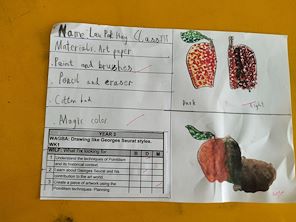 Name: Law Pok Hang Class 1M
Materials: Art paper
. Paint and brushes
. Pencil and eraser
. Cotton bud
. Magic color
Dark
Light
YEAR 2
WAGBA: Drawing like Georges Seurat styles.
WK1
WILF: What I'm looking for
1 Understand the techniques of Pointillism and its historical context.
2 Learn about Georges Seurat and his contribution to the art world.
3 Create a piece of artwork using the Pointillism techniques- Planning